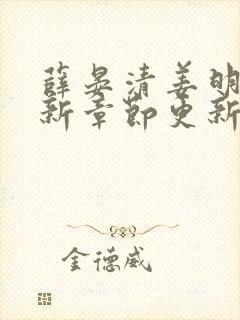 薛晏清姜明
新章節更新
金德威